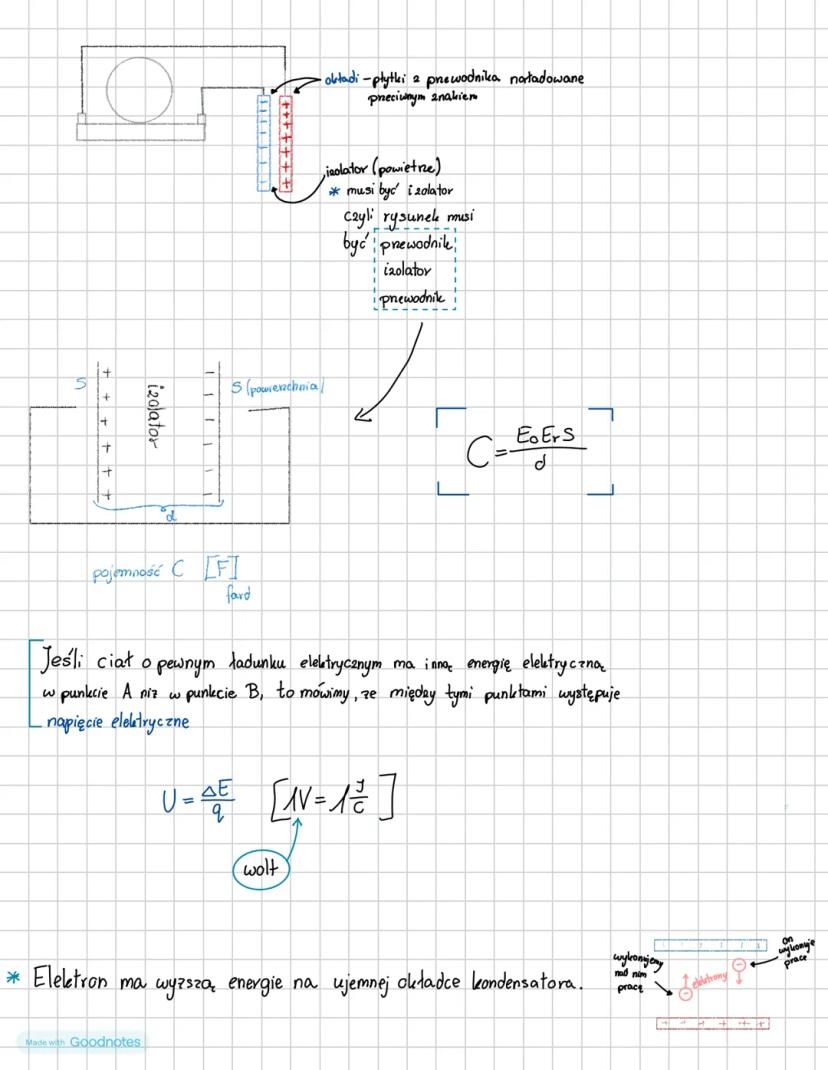 okładi - płytki z przewodnika naładowane
przeciwnym znakiem
izolator (powietrze)
* musi być izolator
czyli rysunek musi
być przewodnik
izolator
przewodnik
S
izolator
S (powierzchnia)
d
C = E₀ErS / d
pojemność C [F]
fard
Jeśli ciał o pewnym ładunku elektrycznym ma inną energię elektryczną
w punkcie A niż w punkcie B, to mówimy, że między tymi punktami występuje
napięcie elektryczne
U = ΔE / q [1V = 1 J/C]
wolt
* Elektron ma wyższą energie na ujemnej okładce kondensatora.
wykonujemy
nad nim
pracę
elektrony
on
wykonuje
prace
Made with Goodnotes